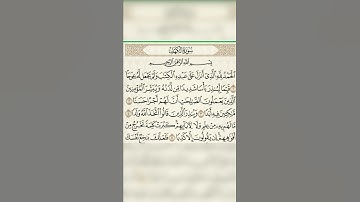 سورة الكهف
بسم الله الرحمن الرحيم
الحمد لله الذي أنزل على عبده الكتب ولم يجعل له عوجا
قيما لينذر بأسا شديدا من لدنه ويبشر المؤمنين
الذين يعملون الصلحت أن لهم أجرا حسنا
مكثين فيه أبدا وينذر الذين قالوا اتخذ الله ولدا
ما لهم به من علم ولا لآبائهم كبرت كلمة تخرج من
أفوههم إن يقولون إلا كذبا فلعلك بخع نفسك